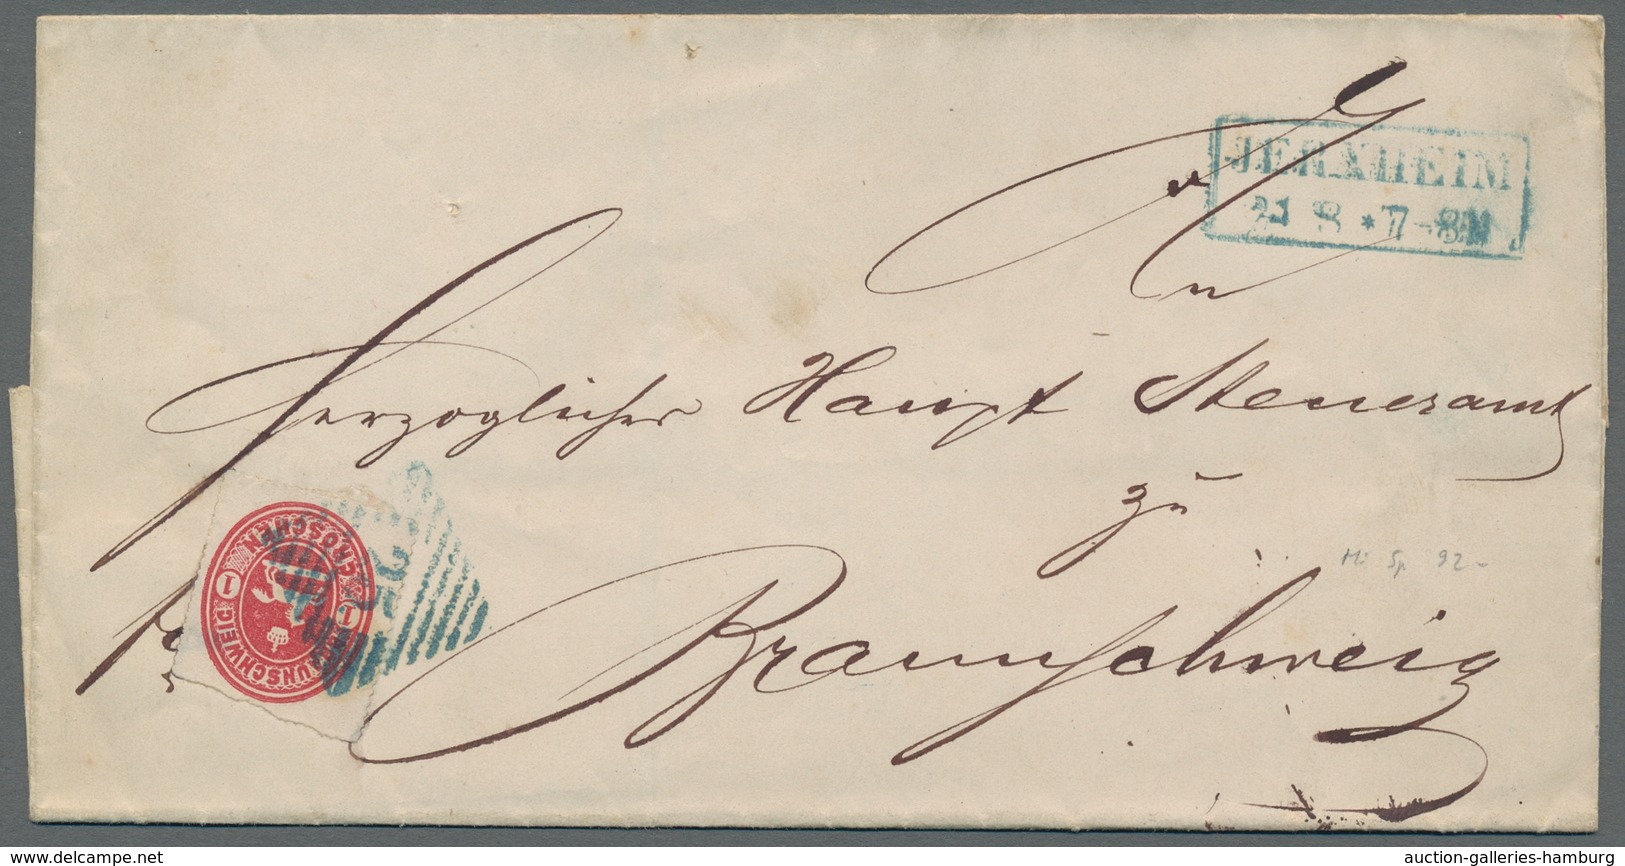 JERXHEIM
21 8 * 7-8M
An
Herzogliches Haupt Steueramt
zu
Braunschweig
fr
GROSCHEN
1 1
BRAUNSCHWEIG
Mi Sp. 92-
delcampe.net
auction-galleries-hamburg